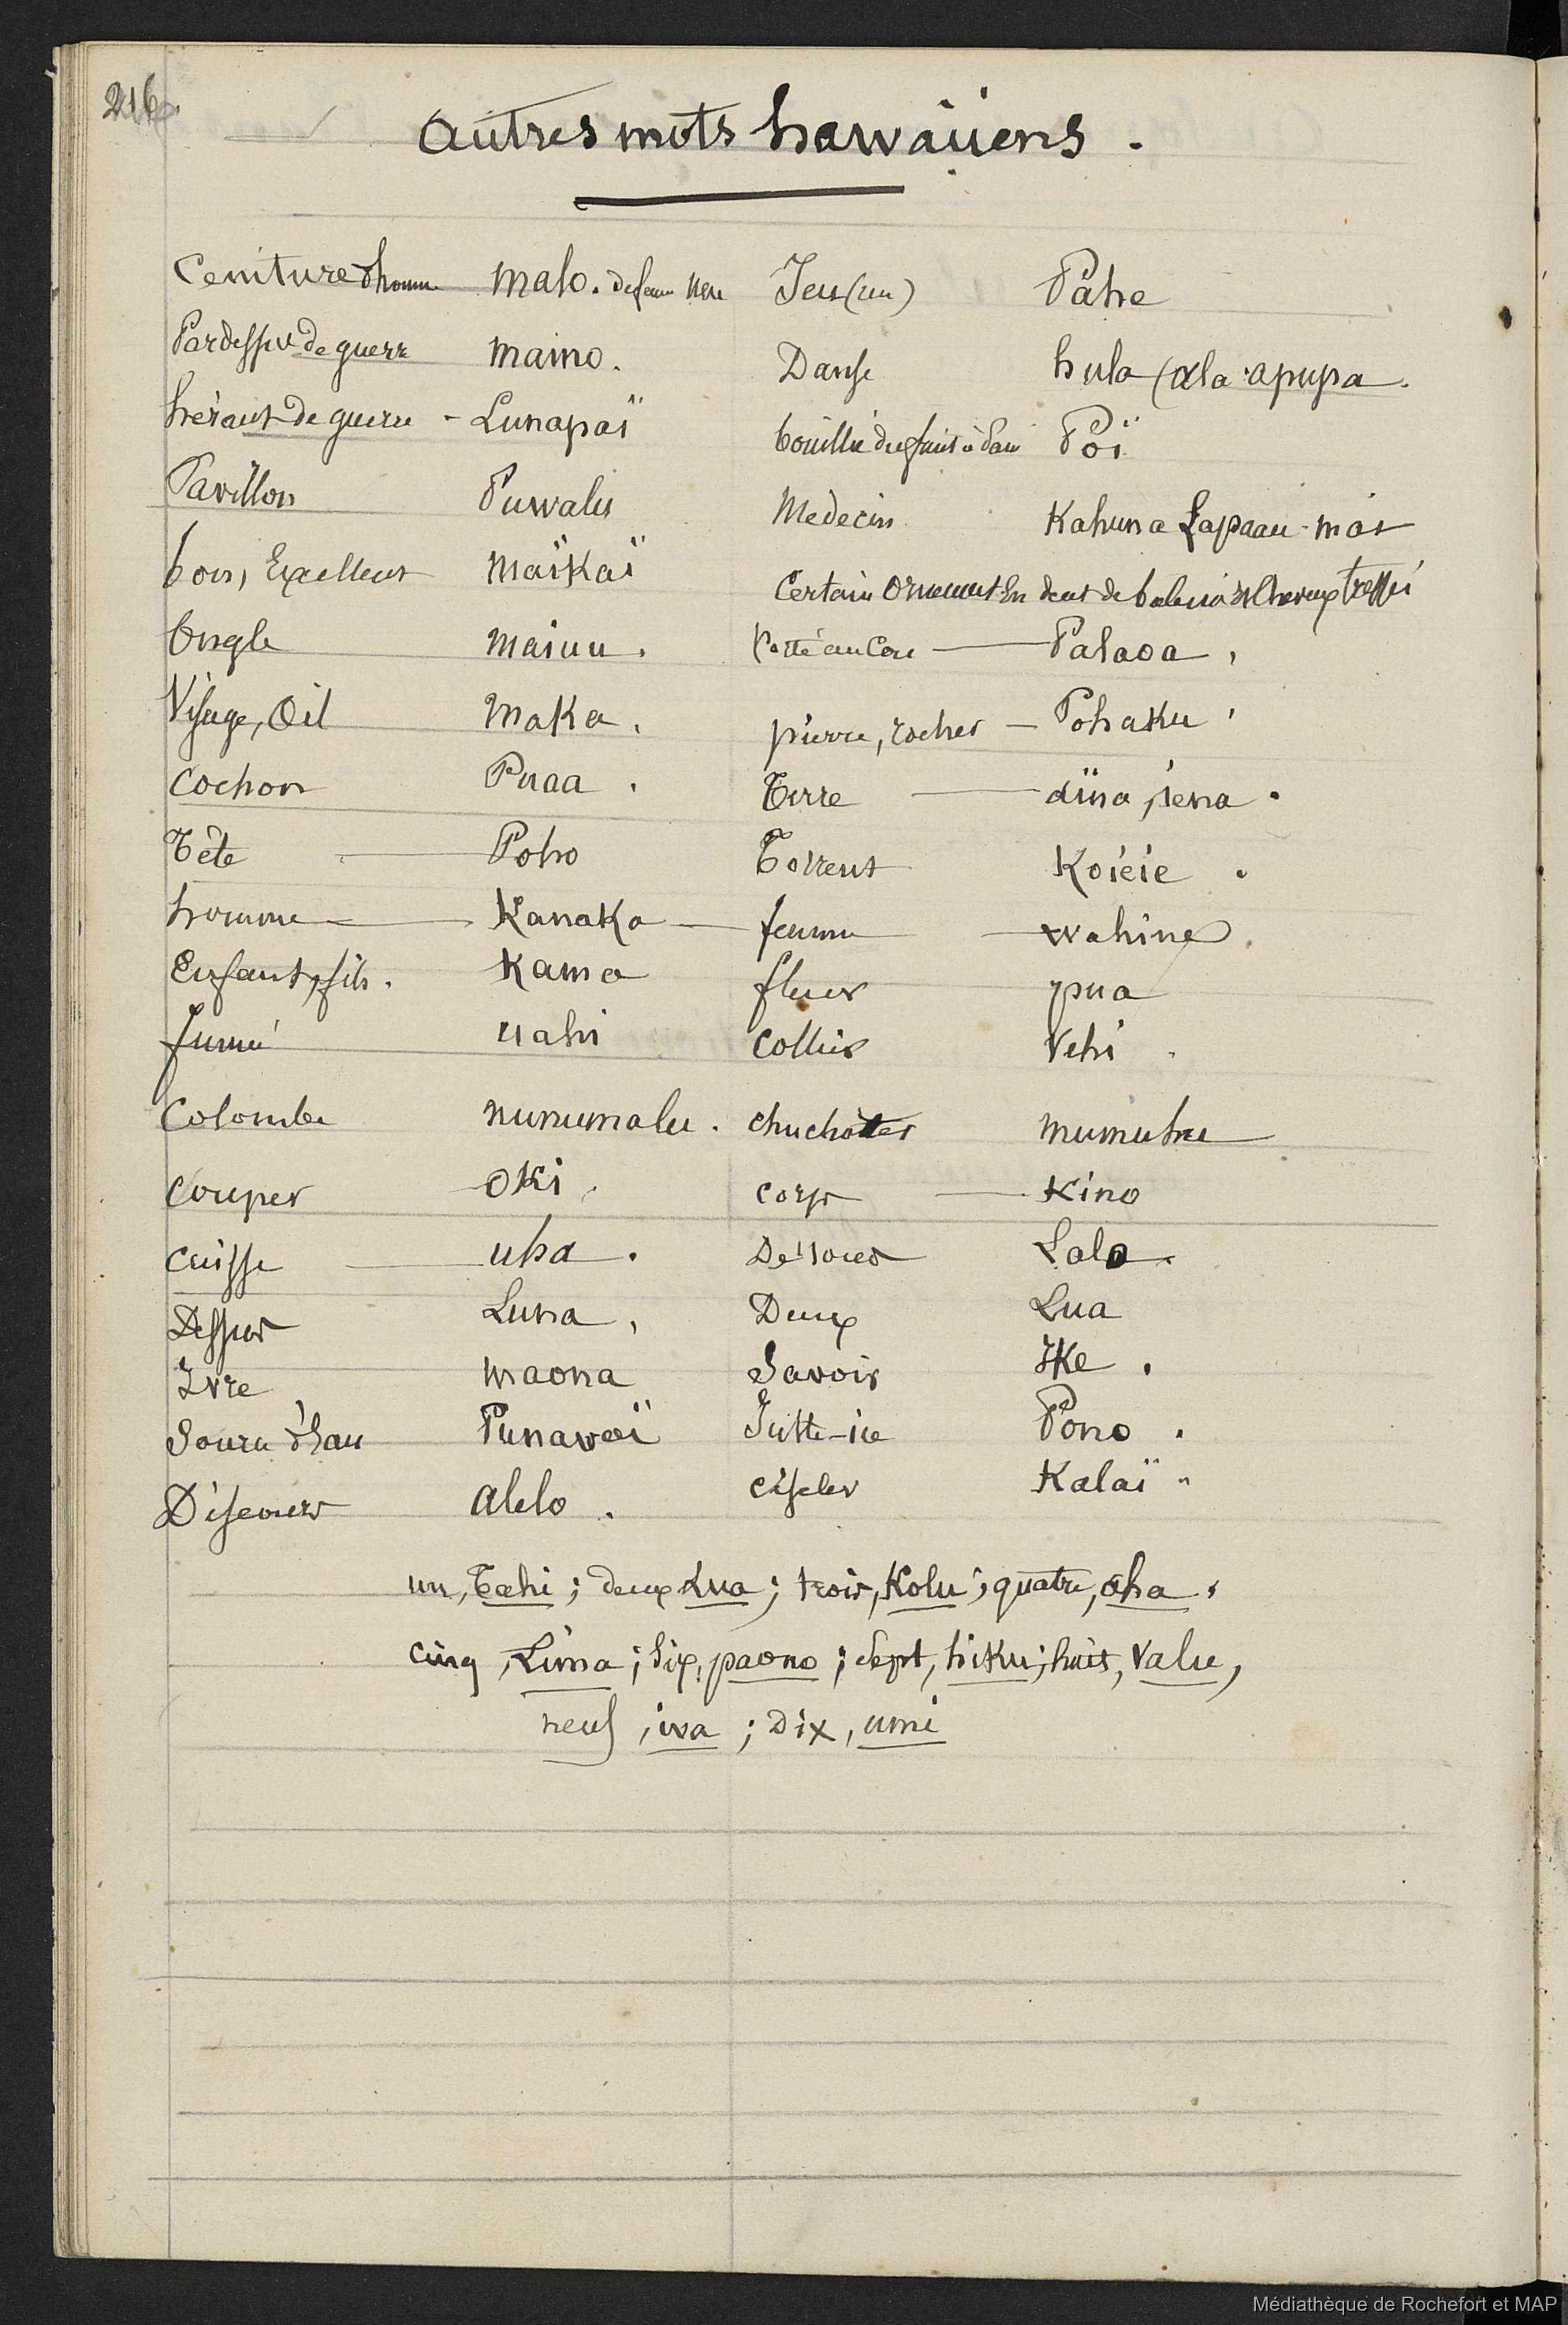 216
autres mots hawaïiens .
Ceinture d'homme malo . de femme Jeu (un) Pahe
Pardessus de guerre maino . Danse hula (ala apupa .
héraut de guerre - Lunapaï bouillie du fruit à pain Poï
Pavillon Puwalu Medecin Kahuna Lapaau maï
bon, Excellent maïkaï Certain Ornement en dent de baleine et cheveux tressés
Ongle maiuu . Porté au Cou — Palaoa .
Visage, Oeil maka . pierre, rocher — Pohaku .
Cochon Puaa . Terre — aïna, iena .
Tête — Poho Torrent Koieie .
homme — Kanaka — femme — wahine
Enfant, fils . Kama fleur pua
fumée uahi Collier Vehi .
Colombe nunumalu . chuchotter mumuhu
Couper Oki . corps — Kino
cuisse — uha . Dessous Lalo .
Dessus Luna . Deux Lua
Ivre maona Savoir Ike .
Source d'Eau Punavaï Juste-ice Pono .
Discours alelo . ciseler Kalaï .
un, Tahi ; deux Lua ; trois, Kolu ; quatre, aha .
cinq, Lima ; Six, paono ; Sept, hiku ; huit, Valu,
neuf, iva ; Dix, umi
Médiathèque de Rochefort et MAP